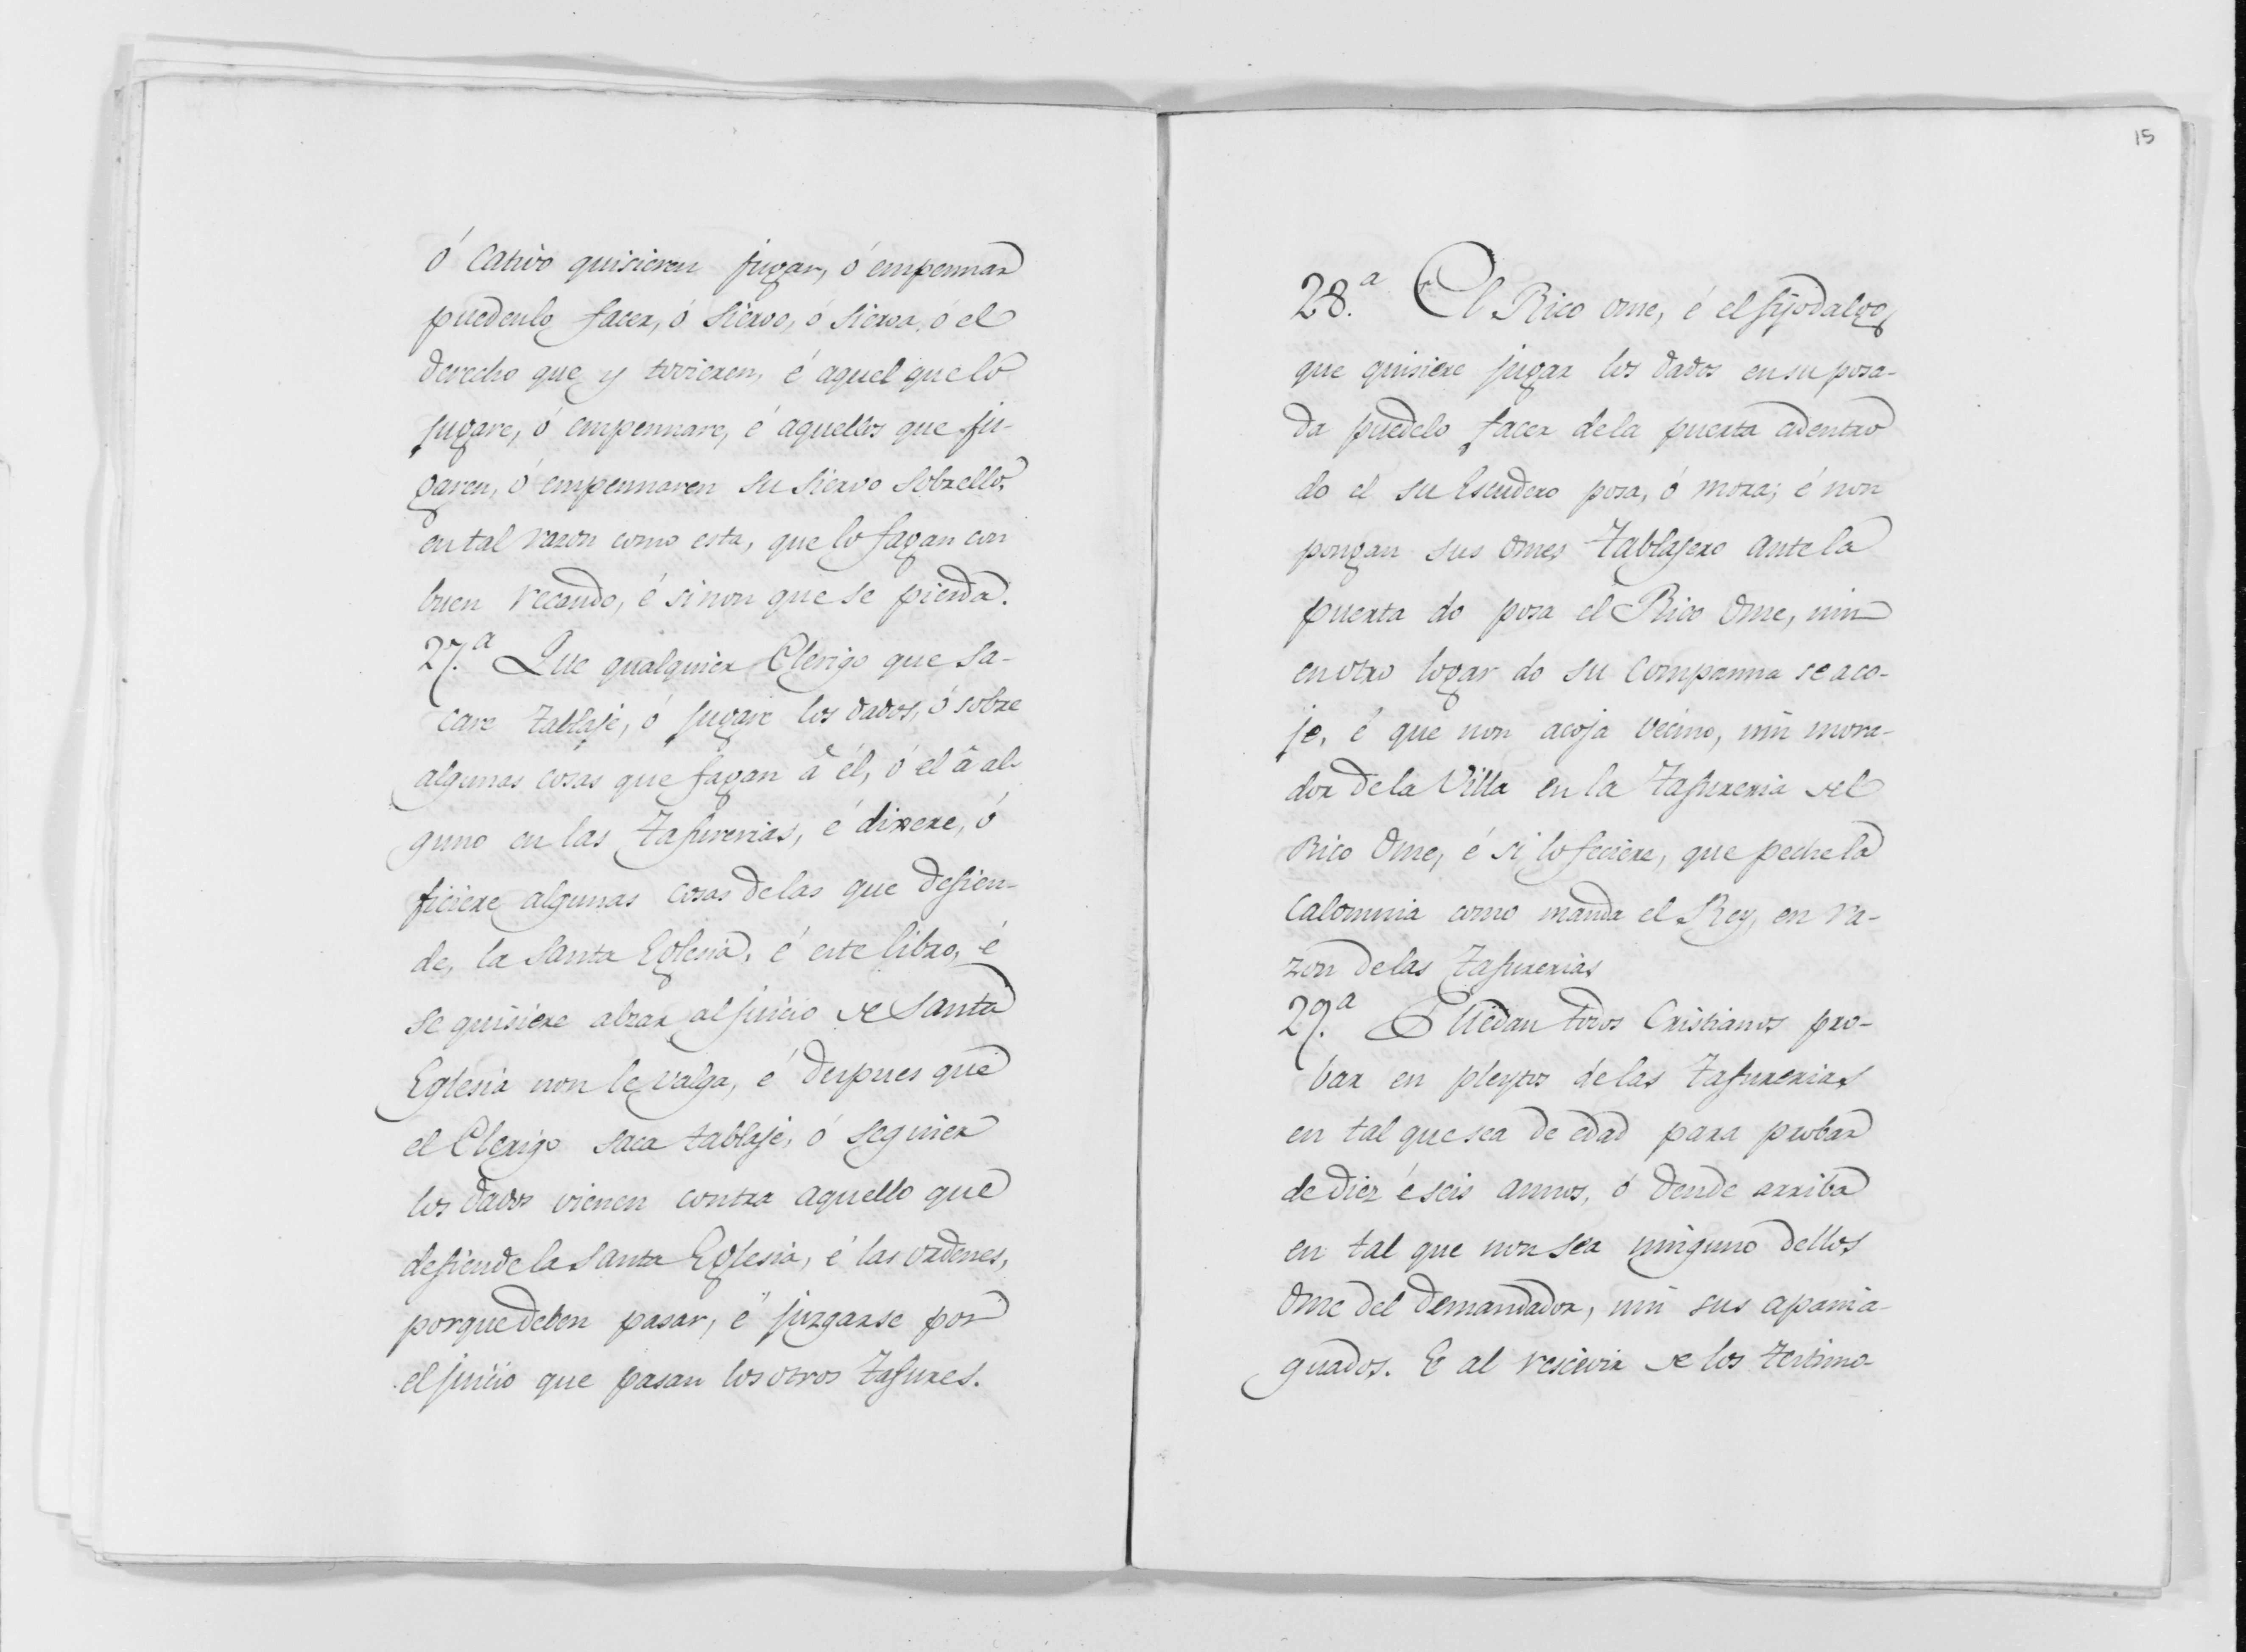 ó Cativo quisieren jugar, ó empennar
puedenlo facer, ó Siervo, ó Sierva, ó el
derecho que y tovieren, é aquel que lo
jugare, ó empennare, é aquellos que ju-
garen, ó empennaren su siervo sobrello,
en tal razon como esta, que lo fagan con
buen recaudo, é si non que se pierda.
27.ª Que qualquier Clerigo que sa-
care tablaje, ó jugare los dados, ó sobre
algunas cosas que fagan â él, ó el â al-
guno en las Tafurerias, é dixere, ó
ficiere algunas cosas delas que defien-
de, la Santa Eglesia, é este libro, é
se quisiere alzar al juicio de Santa
Eglesia non le valga, é despues que
el Clerigo saca tablaje, ó seguier
los dados vienen contra aquello que
defiende la Santa Eglesia, é las ordenes,
porque deben pasar, é juzgarse por
el juicio que pasan los otros Tafures.
15
28.ª El Rico ome, é el fijodalgo
que quisiere jugar los dados en su posa-
da puedelo facer dela puerta adentro
do el su Escudero posa, ó mora; é non
pongan sus Omes Tablajero ante la
puerta do posa el Rico Ome, nin
en otro logar do su Companna se aco-
je, é que non acoja vecino, nin mora-
dor de la Villa en la Tafureria del
Rico Ome, é si lo feciere, que peche la
Calomnia como manda el Rey, en ra-
zon de las Tafurerias
29.ª Puedan todos Cristianos pro-
bar en pleytos delas Tafurerias
en tal que sea de edad para probar
de diez é seis annos, ó dende arriba
en tal que non sea ninguno dellos
Ome del demandador, nin sus apania-
guados. E al rescevir de los testimo-